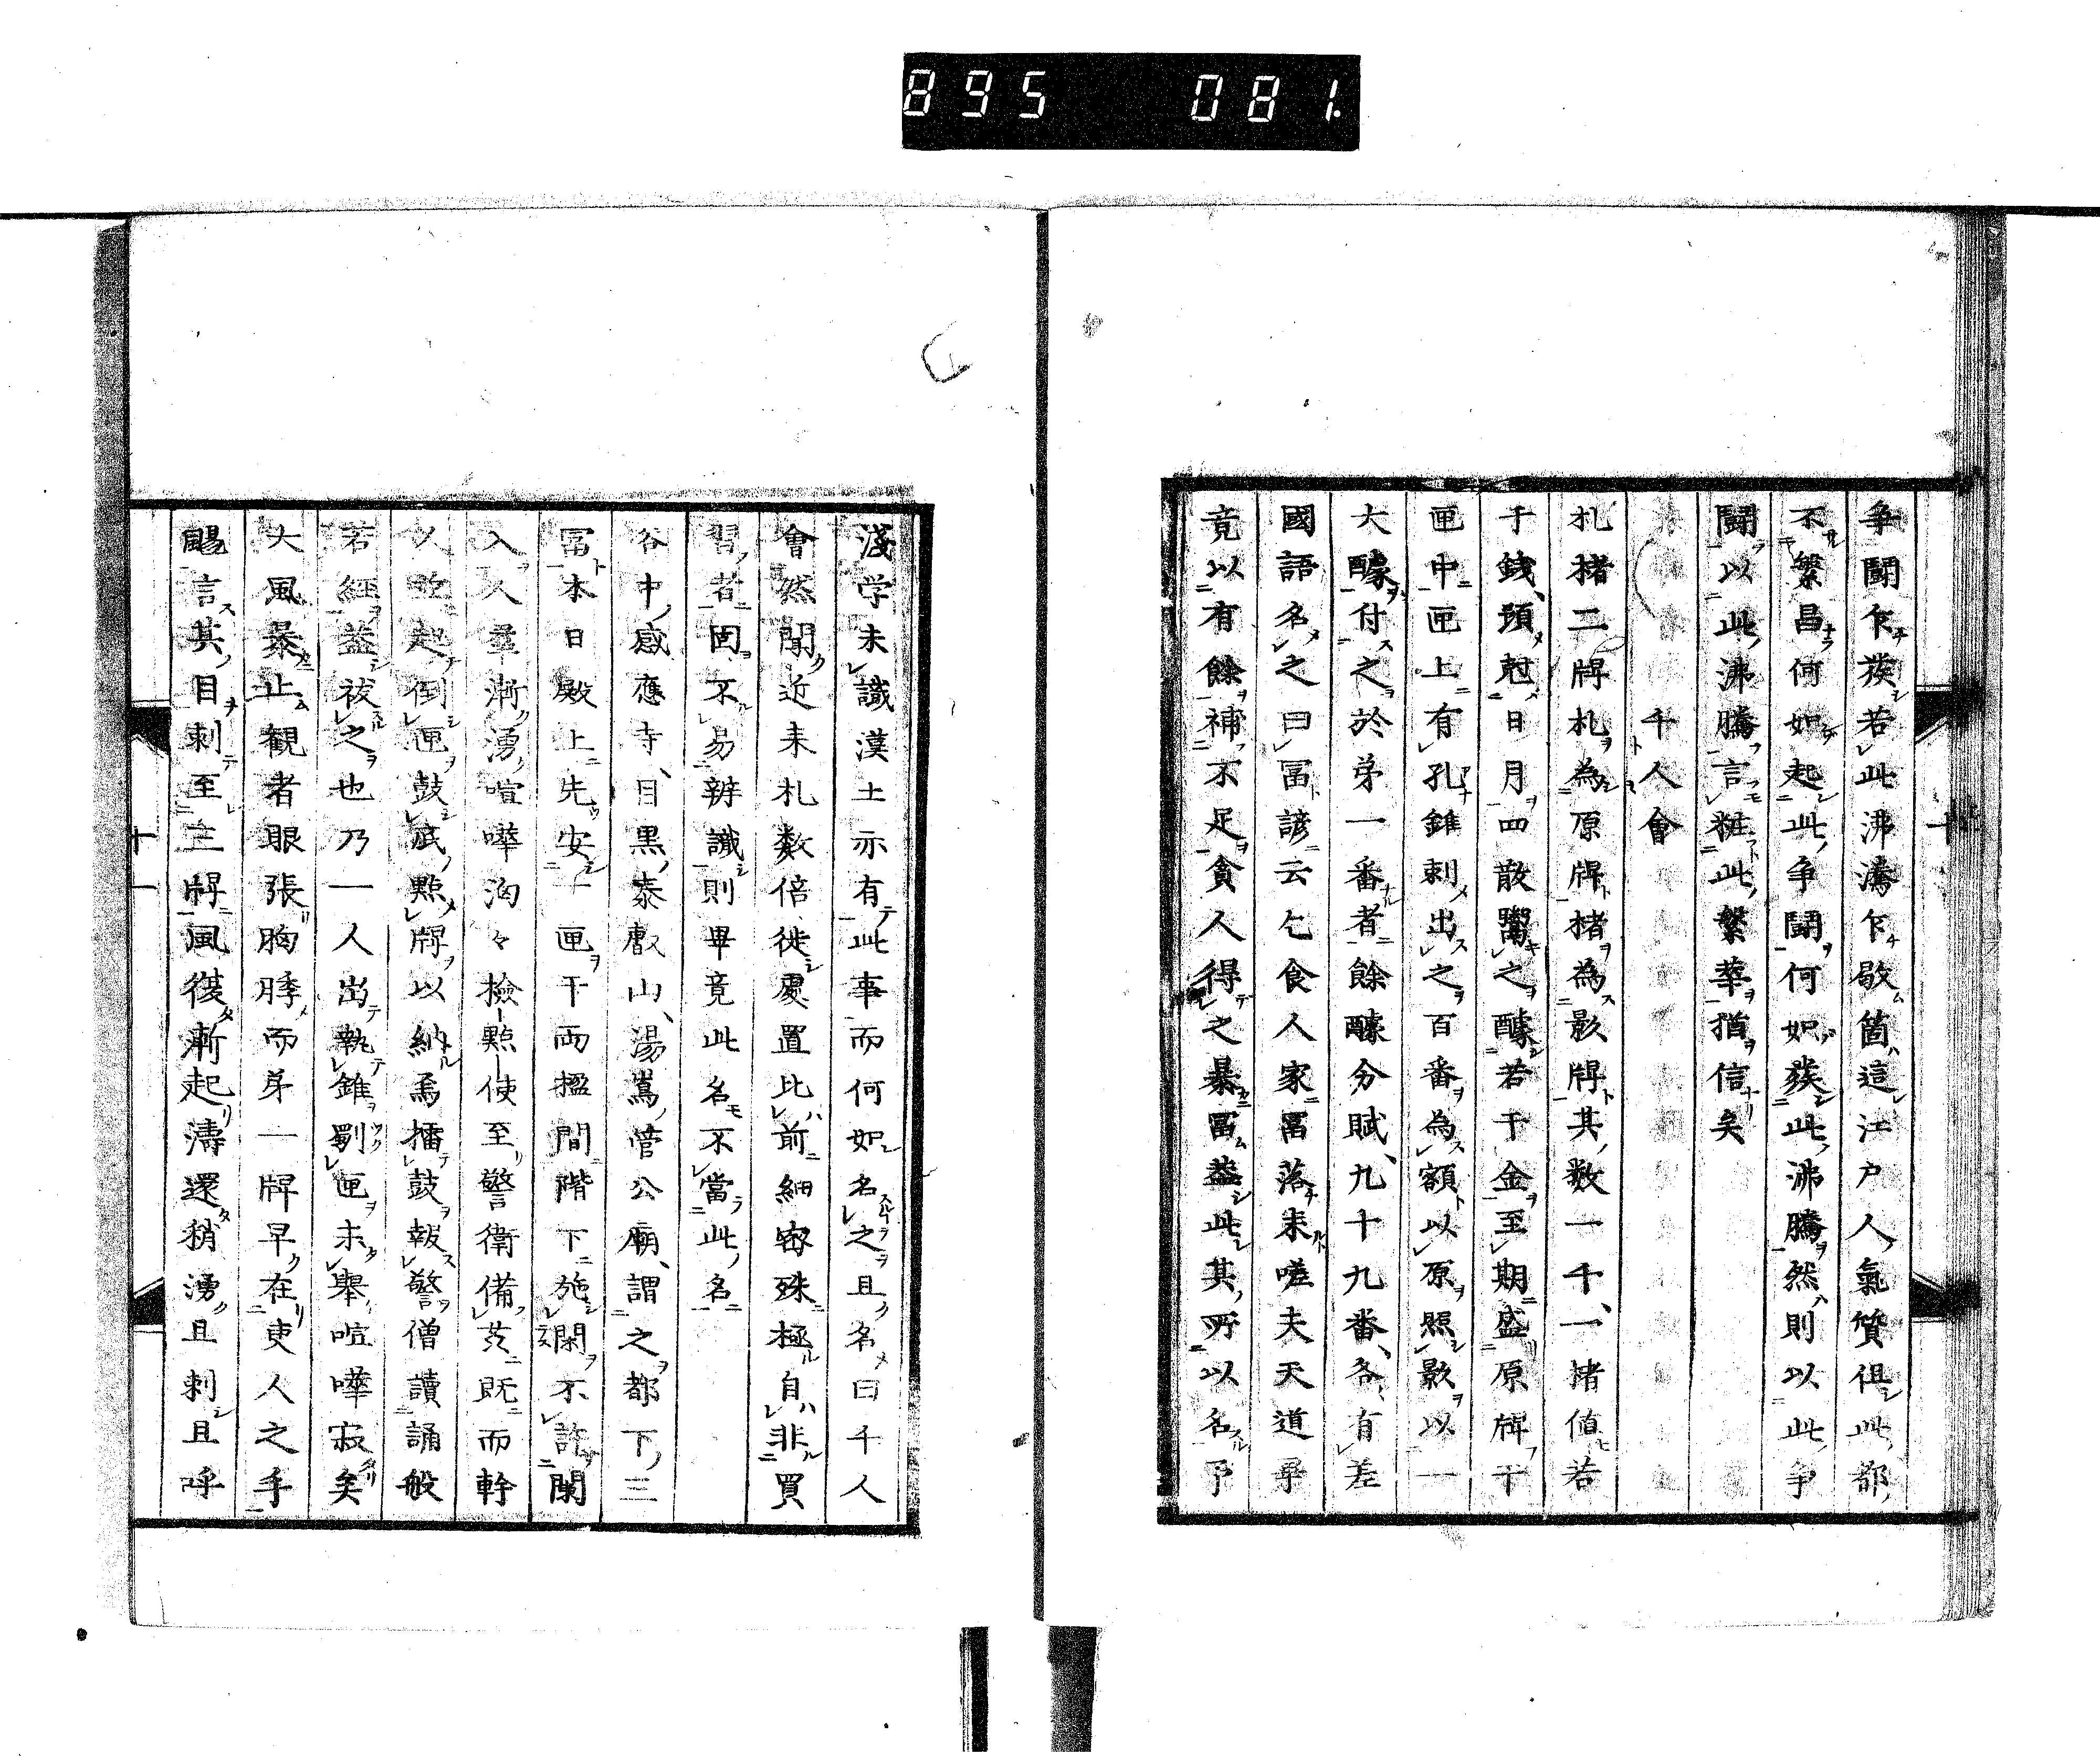 895 081.
争闘乍蔟若此沸瀹乍歇箇這江戸人氣質但此都
不繁昌何如起此争闘何如蔟此沸騰然則以此争
闘以此沸騰言粧此繁華猶信矣
千人會
札楮二牌札為原牌楮為影牌其数一千一楮値若
干銭預尅日月四散鬻之醵若干金至期盛原牌干
匣中匣上有孔錐刺出之百番為額以原照影以一
大醵付之於弟一番者餘醵分賦九十九番各有差
國語名之曰冨諺云乞食人家冨落来嗟夫天道尋
竟以有餘補不足貪人得之暴冨益此其所以名予
淺学未識漢土亦有此事而何如名之且名曰千人
會然聞近来札数倍徙處置比前細密殊極自非買
習者固不易辨識則畢竟此名不當此名
谷中感應寺目黒泰叡山湯嶌菅公廟謂之都下三
冨本日殿上先安一匣干両楹間階下施閑不許闌
入人羣漸湧喧嘩洶々檢點使至警衛備焉既而幹
人起倒匣鼓底點牌以納焉擂鼓報警僧讀誦般
若經益祓之也乃一人出執錐劉匣未舉喧嘩寂矣
大風暴止観者眼張胸悸而弟一牌早在吏人之手
颺言其目刺至三牌風復漸起濤還稍湧且刺且呼
十
十一